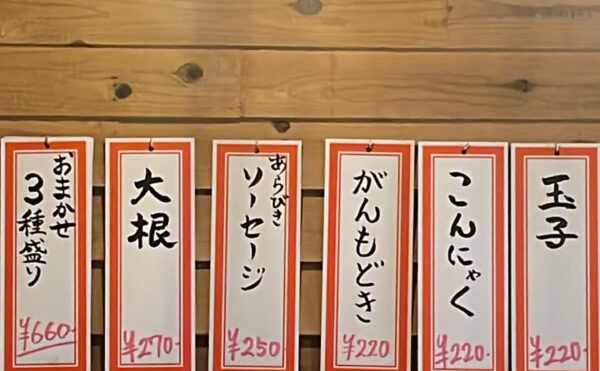 玉子
¥220-
こんにゃく
¥220-
がんもどき
¥220
あらびき
ソーセージ
¥250
大根
¥270-
おまかせ
3種盛り
¥660-